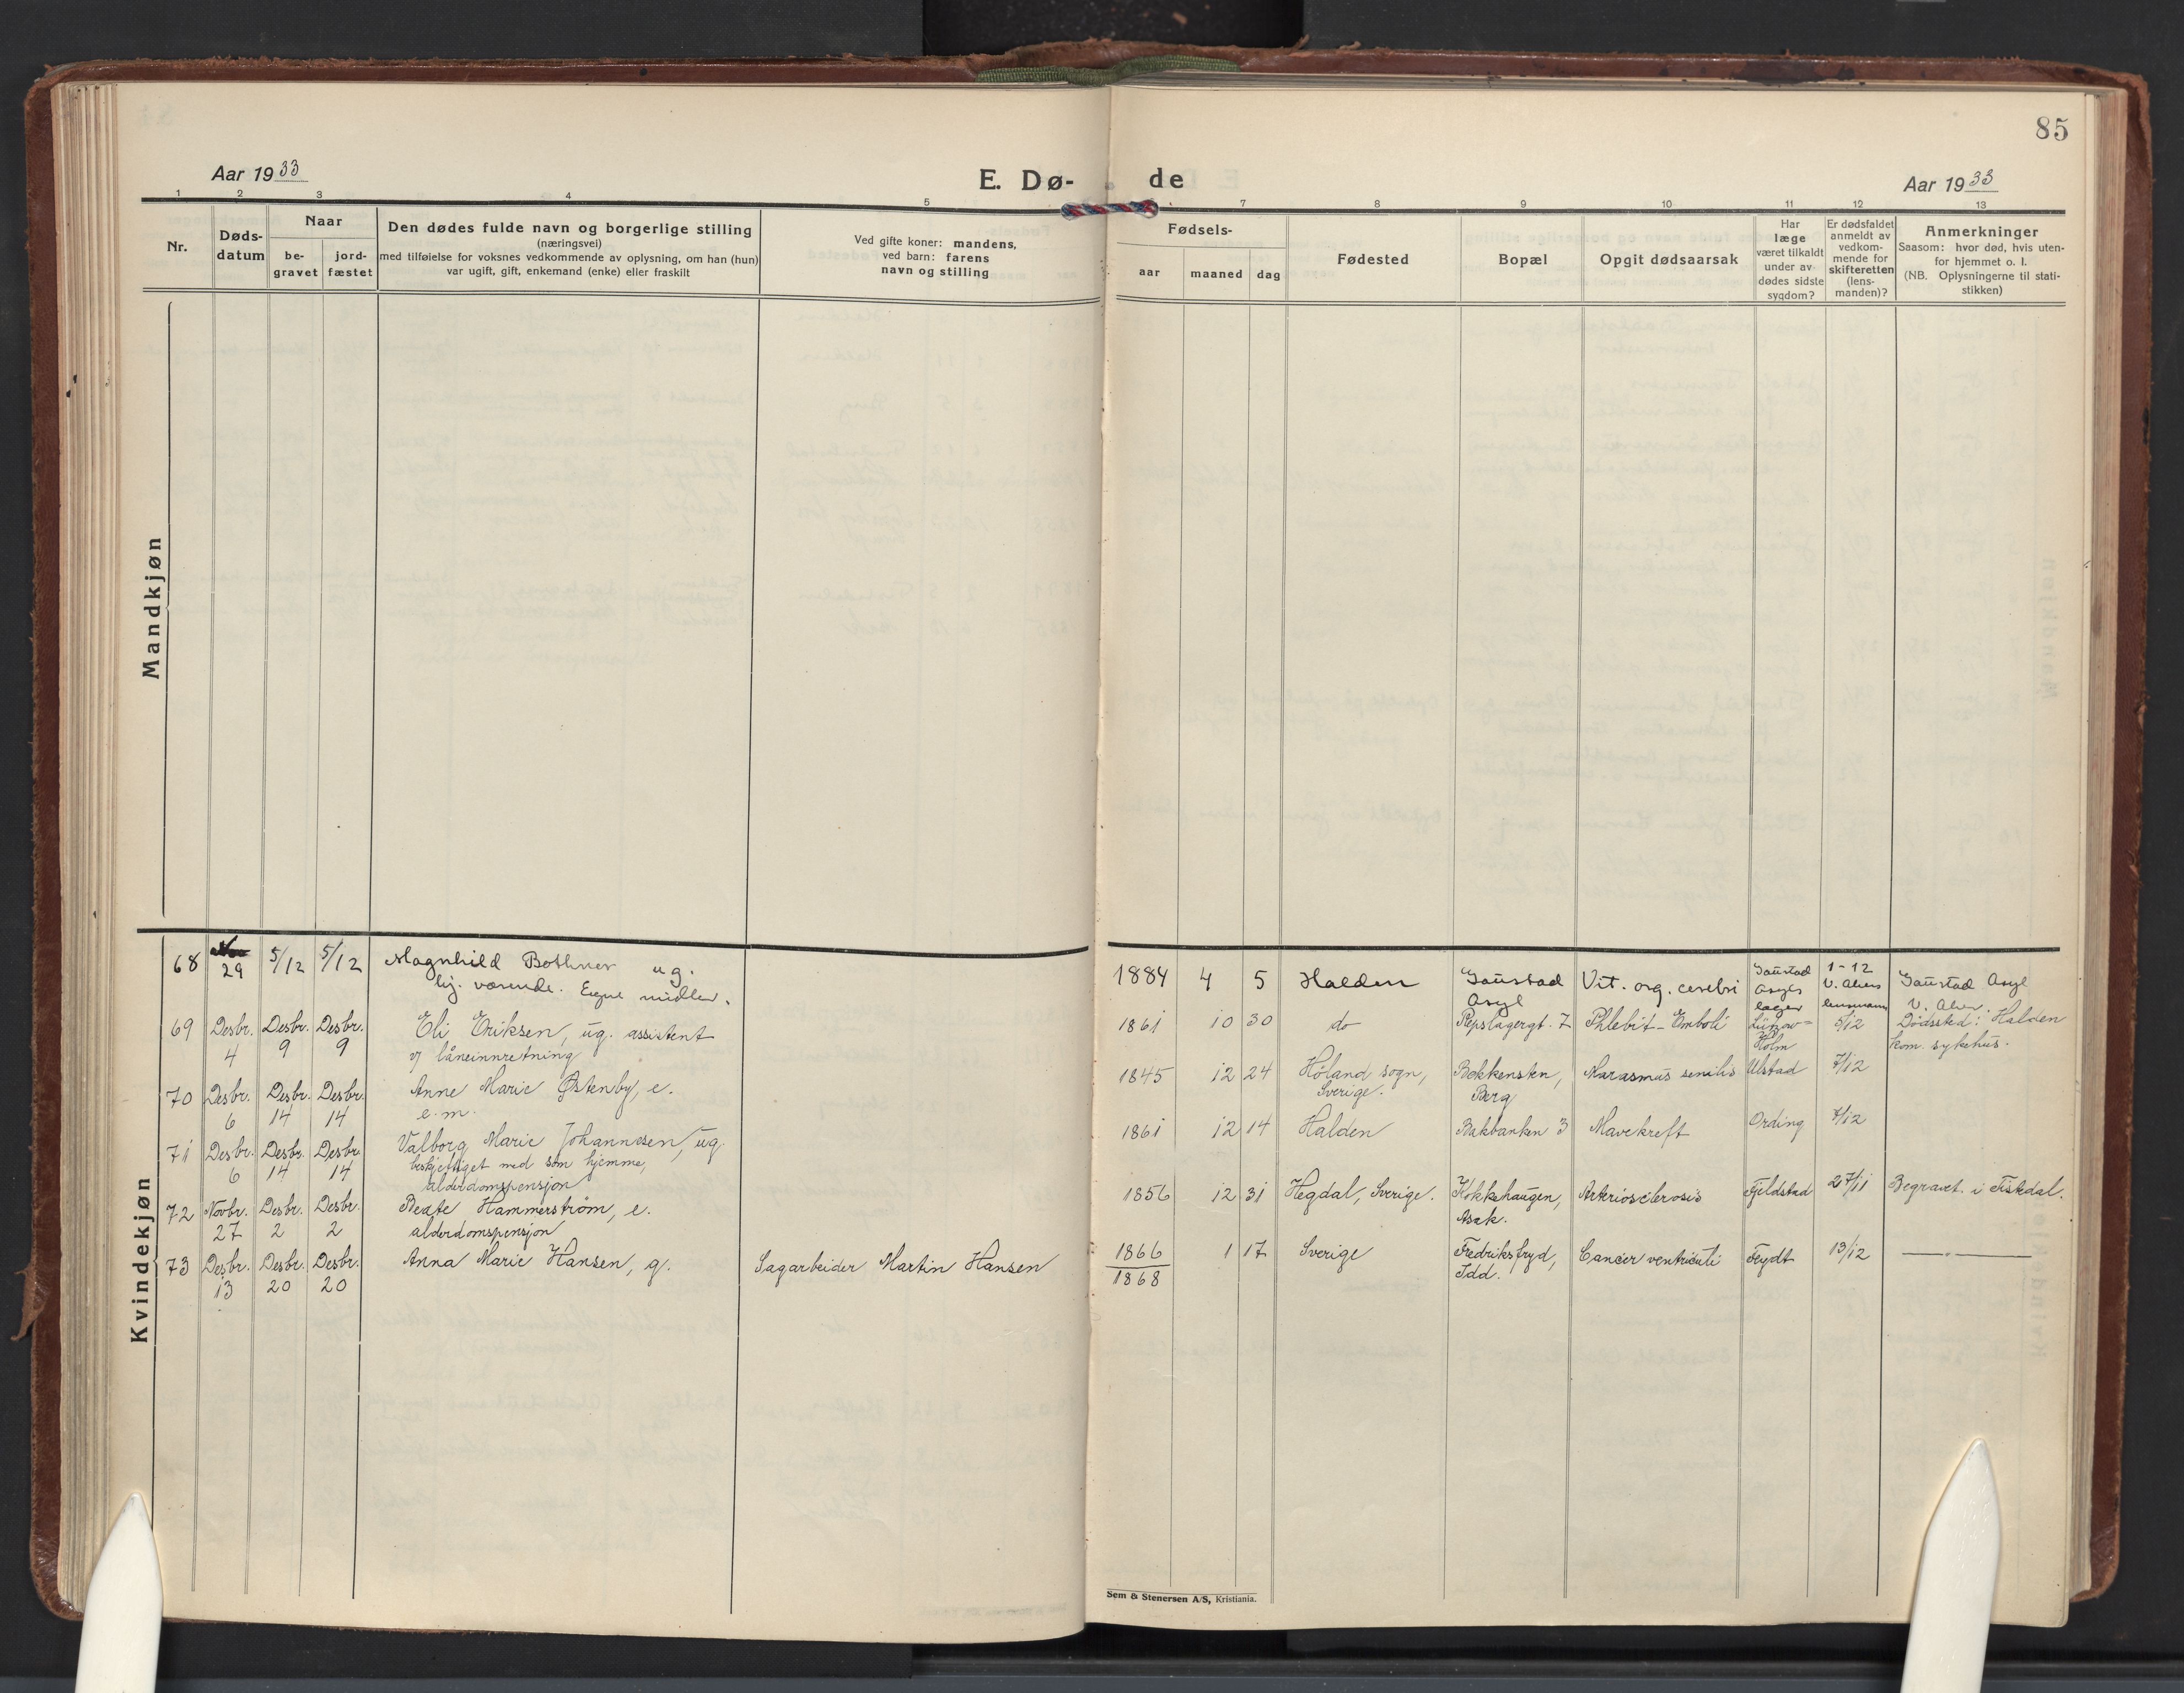 85
Aar 1933
E. Dø-
de
Aar 1933
1 2 3 4 5 7 8 9 10 11 12 13
Nr.
Døds-
datum
Naar
be-
gravet
jord-
fæstet
Den dødes fulde navn og borgerlige stilling
(næringsvei)
med tilføielse for voksnes vedkommende av oplysning, om han (hun)
var ugift, gift, enkemand (enke) eller fraskilt
Ved gifte koner: mandens,
ved barn: farens
navn og stilling
Fødsels-
aar
maaned
dag
Fødested
Bopæl
Opgit dødsaarsak
Har
læge
været tilkaldt
under av-
dødes sidste
sygdom?
Er dødsfaldet
anmeldt av
vedkom-
mende for
skifteretten
(lens-
manden)?
Anmerkninger
Saasom: hvor død, hvis uten-
for hjemmet o. l.
(NB. Oplysningerne til stati-
stikken)
Mandkjøn
Kvindekjøn
68 Nov 29 5/12 5/12 Magnhild Bothner ug. 1884 4 5 Halden Gaustad Vit. org. cerebri Gaustad 1-12 Gaustad Asyl
hj. værende. Egne midler. Asyl Asyls læge V. Aker lensmann V. Aker
69 Desbr. Desbr. Desbr. Eli Eriksen, ug. assistent 1861 10 30 do Repslagergt. 7 Phlebit-Emboli Lünow= 5/12 Dødssted: Halden
4 9 9 v/ låneinnretning Holm kom. sykehus.
70 Desbr. Desbr. Desbr. Anne Marie Østenby, e. 1845 12 24 Høland sogn, Bekkensten, Marasmus senilis Ulstad 7/12
6 14 14 e.m. Sverige. Berg
71 Desbr. Desbr. Desbr. Valborg Marie Johannesen, ug. 1861 12 14 Halden Bakbanken 3 Mavekreft Ording 7/12
6 14 14 beskjeftiget med søm hjemme,
alderdomspensjon
72 Novbr. Desbr. Desbr. Beate Hammerstrøm, e. 1856 12 31 Hegdal, Sverige. Kokkehaugen, Arteriosclerosis Fjeldstad 27/11 Begravet i Tistedal.
27 2 2 alderdomspensjon Asak.
73 Desbr. Desbr. Desbr. Anna Marie Hansen, g. Sagarbeider Martin Hansen 1866 1 17 Sverige Fredriksfryd, Cancer ventriculi Feydt 13/12 — " —
13 20 20 1868 Idd.
Sem & Stenersen A/S, Kristiania.